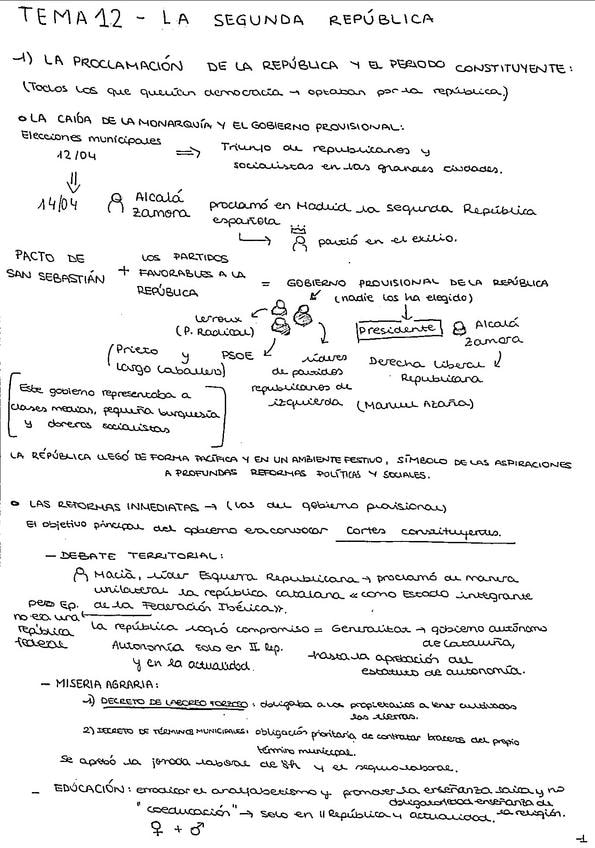 TEMA 12 - LA SEGUNDA REPÚBLICA
1) LA PROCLAMACIÓN DE LA REPÚBLICA Y EL PERIODO CONSTITUYENTE:
(Todos los que querían democracia → optaban por la república.)
o LA CAÍDA DE LA MONARQUÍA Y EL GOBIERNO PROVISIONAL:
Elecciones municipales
12/04
⇒ Triunfo de republicanos y
socialistas en las grandes ciudades.
⇓
14/04
Alcalá
Zamora
proclamó en Madrid la Segunda República
española
↳ partió en el exilio.
PACTO DE
SAN SEBASTIÁN
+
LOS PARTIDOS
FAVORABLES A LA
REPÚBLICA
= GOBIERNO PROVISIONAL DE LA REPÚBLICA
(nadie los ha elegido)
Lerroux
(P. Radical)
Presidente
Alcalá
Zamora
(Prieto y PSOE
Largo Caballero)
líderes
de partidos
republicanos de
izquierda (Manuel Azaña)
Derecha Liberal
Republicana
Este gobierno representaba a
clases medias, pequeña burguesía
y obreros socialistas
LA REPÚBLICA LLEGÓ DE FORMA PACÍFICA Y EN UN AMBIENTE FESTIVO, SÍMBOLO DE LAS ASPIRACIONES
A PROFUNDAS REFORMAS POLÍTICAS Y SOCIALES.
o LAS REFORMAS INMEDIATAS → (las del gobierno provisional)
El objetivo principal del gobierno era convocar Cortes constituyentes.
- DEBATE TERRITORIAL:
Macià, líder Esquerra Republicana → proclamó de manera
unilateral la república catalana «como Estado integrante
de la Federación Ibérica».
pero Ep.
no era una
república
federal
la república logró compromiso = Generalitat → gobierno autónomo
de Cataluña,
hasta la aprobación del
estatuto de autonomía.
Autonomía solo en II Rep.
y en la actualidad.
- MISERIA AGRARIA:
1) DECRETO DE LABOREO FORZOSO: obligaba a los propietarios a tener cultivadas
las tierras.
2) DECRETO DE TÉRMINOS MUNICIPALES: obligación prioritaria de contratar braceros del propio
término municipal.
Se aprobó la jornada laboral de 8h y el seguro laboral.
- EDUCACIÓN: erradicar el analfabetismo y promover la enseñanza laica y no
obligatoriedad enseñanza de
la religión.
"coeducación" → solo en II República y actualidad.
♀ + ♂
1